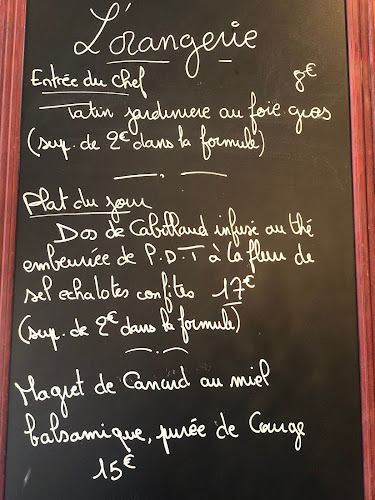 L'orangerie
Entrée du chef 8€
Tatin jardiniere au foie gras
(sup. de 2€ dans la formule)
Plat du jour
Dos de Cabillaud infusé au thé
embeurrée de P.D.T à la fleur de
sel echalotes confites 17€
(sup. de 2€ dans la formule)
Magret de Canard au miel
balsamique, purée de Courge
15€